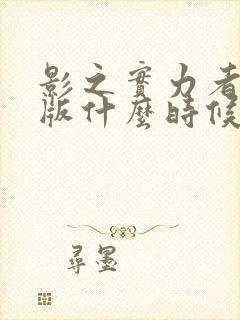 影之實力者
版什麼時候
尋墨